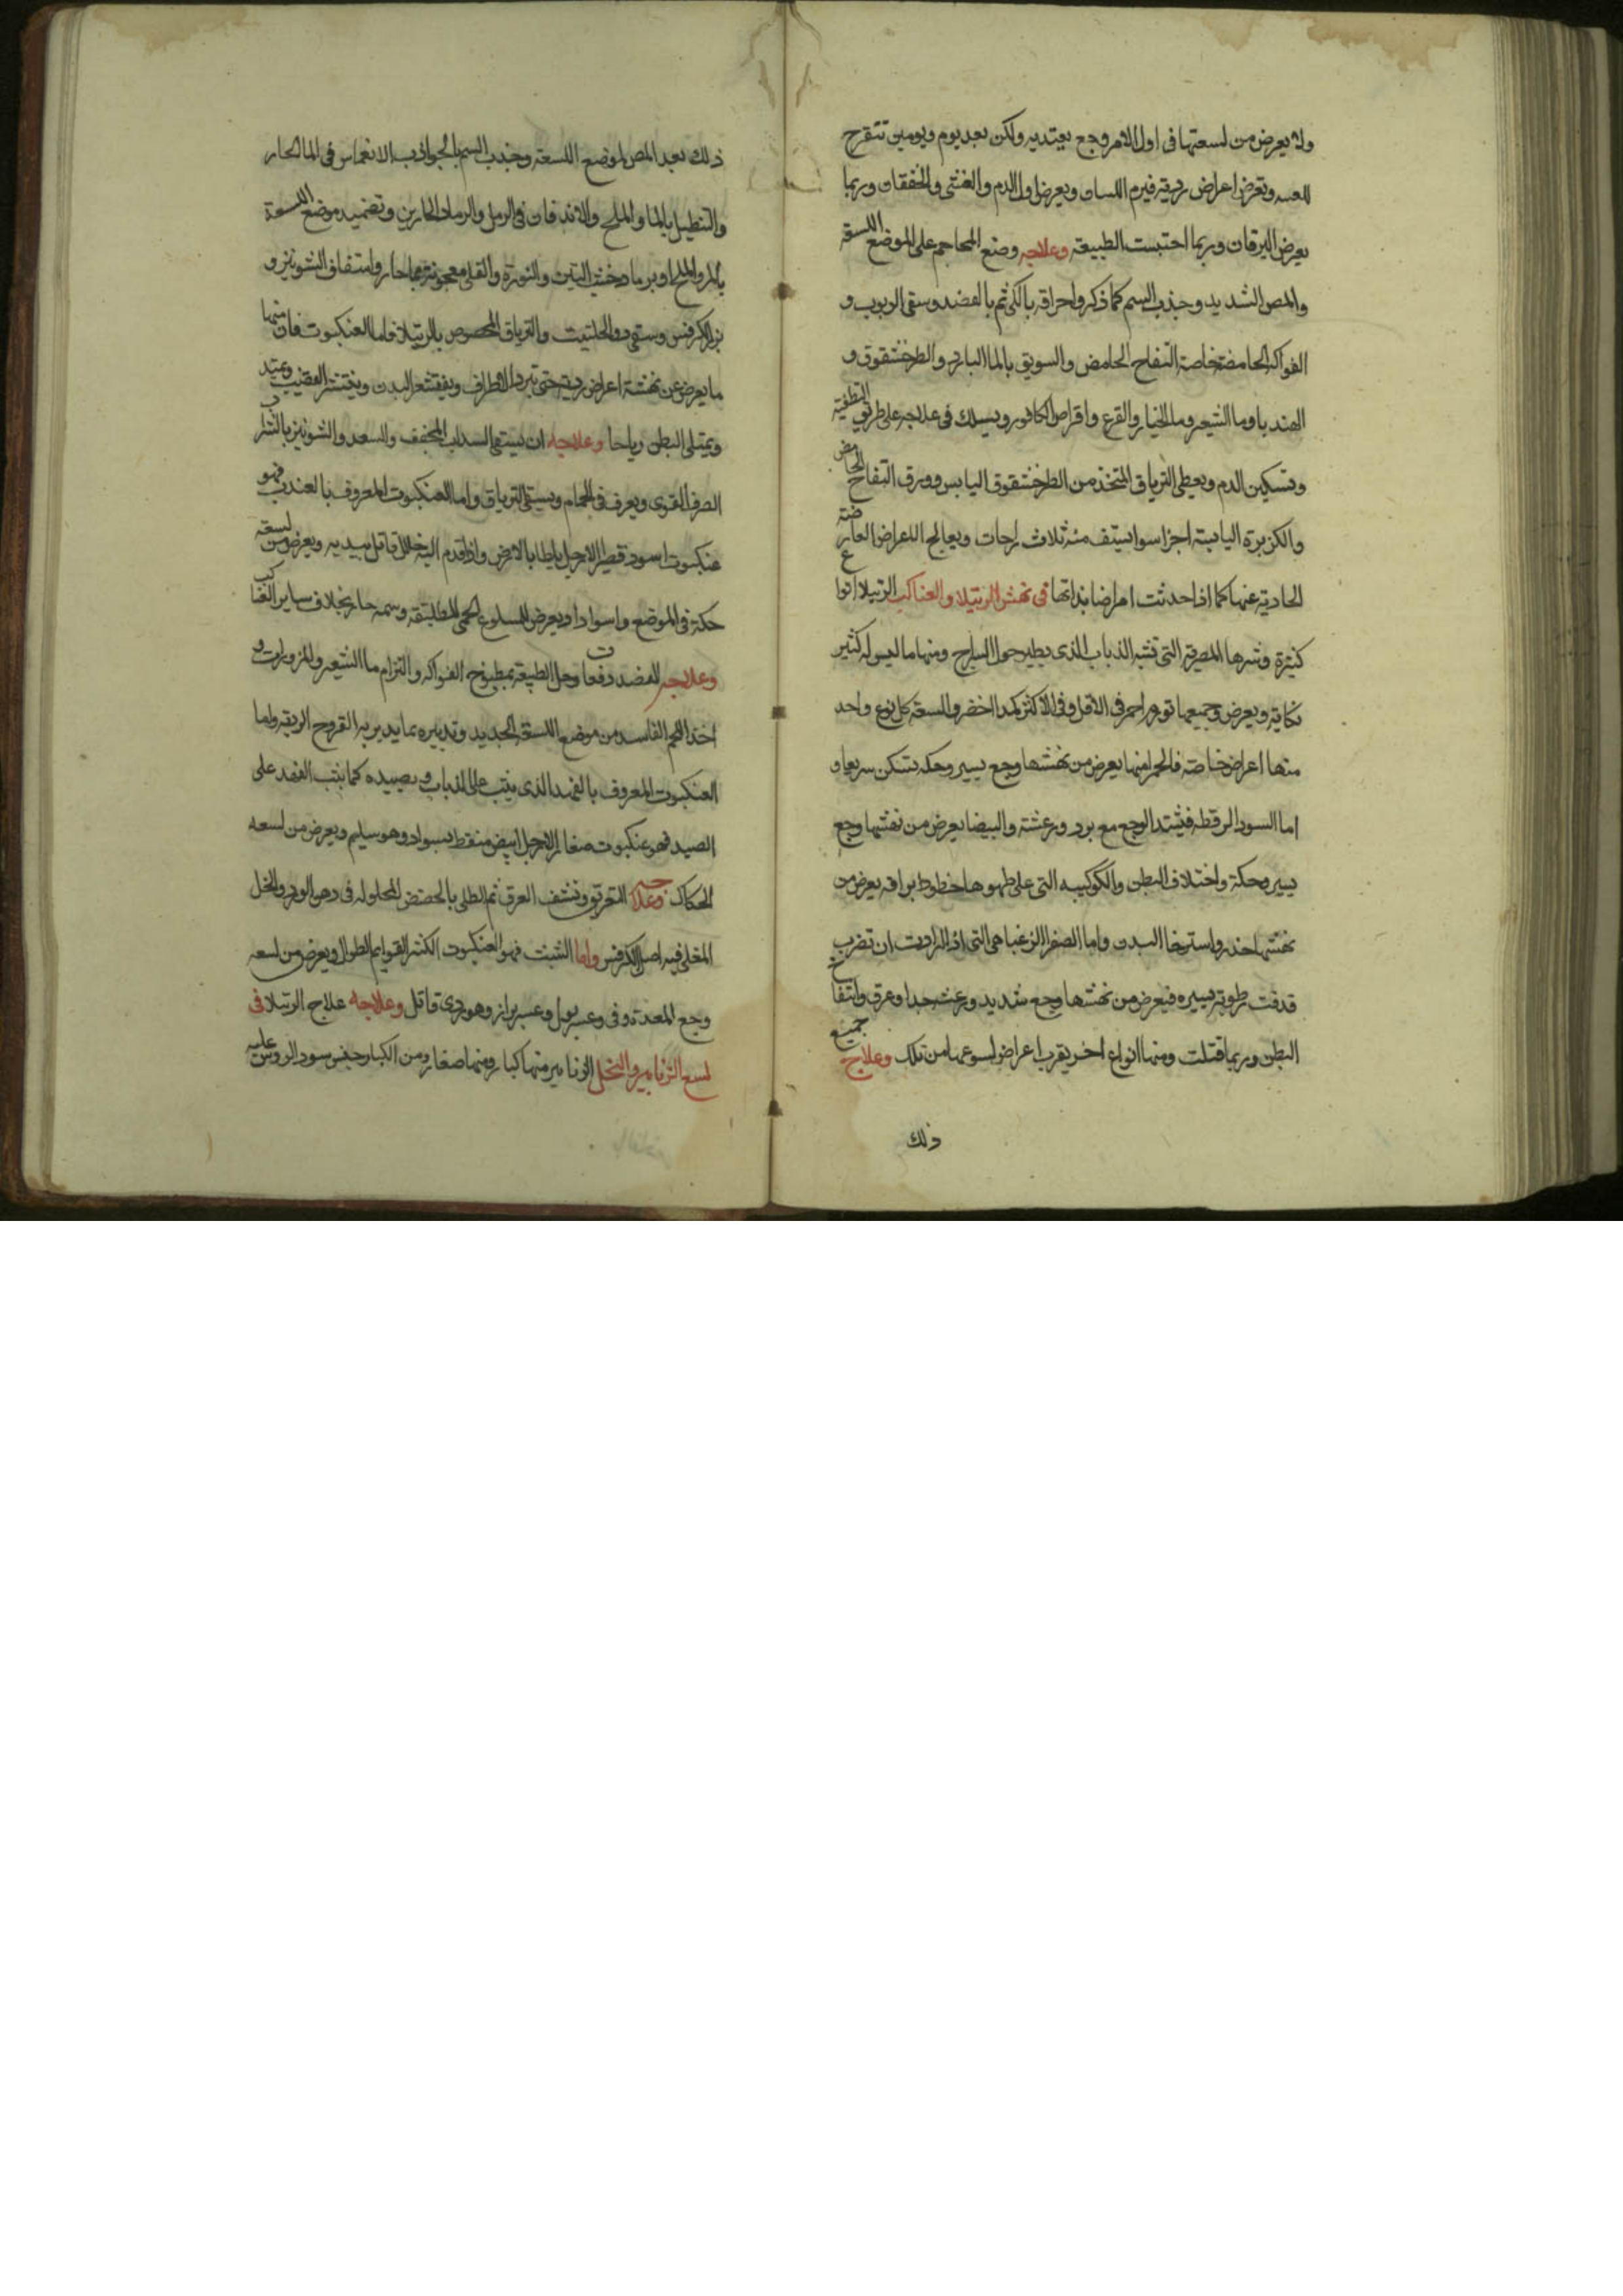 ولا يعرض من لسعتها فى اول الامر وجع يعتد به ولكن بعد يوم ويومين تتقرح
اللسعه وتعرض اعراض ردية فيرم اللسان ويعرض بول الدم والغشى والخفقان وربما
يعرض اليرقان وربما احتبست الطبيعة وعلاجه وضع المحاجم على الموضع اللسعة
والمص الشديد وجذب السم كما ذكر واحراقه بالكى ثم بالفصد وسقى الربوب و
الفواكه الحامضة خاصة التفاح الحامض والسويق بالما البارد والطرخشقوق و
الهندبا وما الشعير وما الخيار والقرع واقراص الكافور ويسلك فى علاجه على طريق التطفية
وتسكين الدم ويعطى الترياق المتخذ من الطرخشقوق اليابس وورق التفاح الحامض
والكزبرة اليابسة اجزا سوا يستف منه ثلاث راحات ويعالج الاعراض العارضة
الحادية عنها كما اذا حدثت امراضا بذاتها فى نهش الرتيلا والعناكب الرتيلا انواع
كثيرة وشرها المصرية التى تشبه الذباب الذى يطير حول السراج ومنها ما ليس له كثير
نكاية ويعرض فى جميعها تورم احمر فى الاقل وفى الاكثر كمد اخضر واللسعة كل نوع واحد
منها اعراض خاصة فالحمرا منها يعرض من نهشها وجع يسير وحكه تسكن سريعا و
اما السودا الرقطه فيشتد الوجع مع برد ورعشة والبيضا يعرض من نهشها وجع
يسير وحكة واختلاف البطن والكوكبيه التى على ظهرها خطوط براقه يعرض من
نهشها خدر واسترخا البدن واما الصفرا الزغبا هى التى اذا ارادت ان تضرب
قذفت رطوبة يسيره فيعرض من نهشها وجع شديد ورعشه جدا وعرق وانتفاخ
البطن وربما قتلت ومنها انواع اخر يقرب اعراض لسوعها من تلك وعلاج جميع
ذلك
ذلك بعد المص لموضع اللسعة وجذب السم بالجواذب الانغماس فى الما الحار
والتنطيل بالما والملح والاندفان فى الرمل والرماد الحارين وتضميد موضع اللسعة
بالمر والملح او برماد خشب التين والنورة والقلى معجونة بما حار واستفاف الشونيز و
بزر الكرفس وسقى دوا الحلتيت والترياق المخصوص بالرتيلا فاما العنكبوت فان منها
ما يعرض عن نهشة اعراض ردية حتى تبرد الاطراف ويقشعر البدن وينتشر القضيب ويمتد
ويمتلى البطن رياحا وعلاجه ان يستقى السداب المجفف والسعد والشونيز بالشراب
الصرف القوى ويعرف فى الحمام ويسقى الترياق واما العنكبوت المعروف بالعندب فهو
عنكبوت اسود قصير الارجل يلطا بالارض واذا قدم اليه خلال قاتل بيديه ويعرض من لسعة
حكة فى الموضع واسوداد ويعرض للملسوع الحمى المطبقة وسمه حار بخلاف ساير العناكب
وعلاجه الفصد دفعات وحل الطبيعة بمطبوخ الفواكه والتزام ما الشعير والمزورات و
اخذ اللحم الفاسد من موضع اللسعة بالحديد وتدبيره بما يدبر به القروح الرديه واما
العنكبوت المعروف بالفهد الذى يثب على الذباب و يصيده كما يثب الفهد على
الصيد فهو عنكبوت صغار الارجل ابيض منقط بسواد وهو سليم ويعرض من لسعه
الحكاك وعلاجه التعريق وتنشف العرق ثم الطلى بالحضض المحلوله فى دهن الورد والخل
المغلى فيه اصل الكرفس واما الشبث فهو العنكبوت الكثير القوايم الطوال ويعرض من لسعه
وجع المعدة وقى وعسر بول وعسر براز وهو ردى قاتل وعلاجه علاج الرتيلا فى
لسع الزنابير والنحل الزنابير منها كبار ومنها صغار ومن الكبار جنس سود الروس عليه